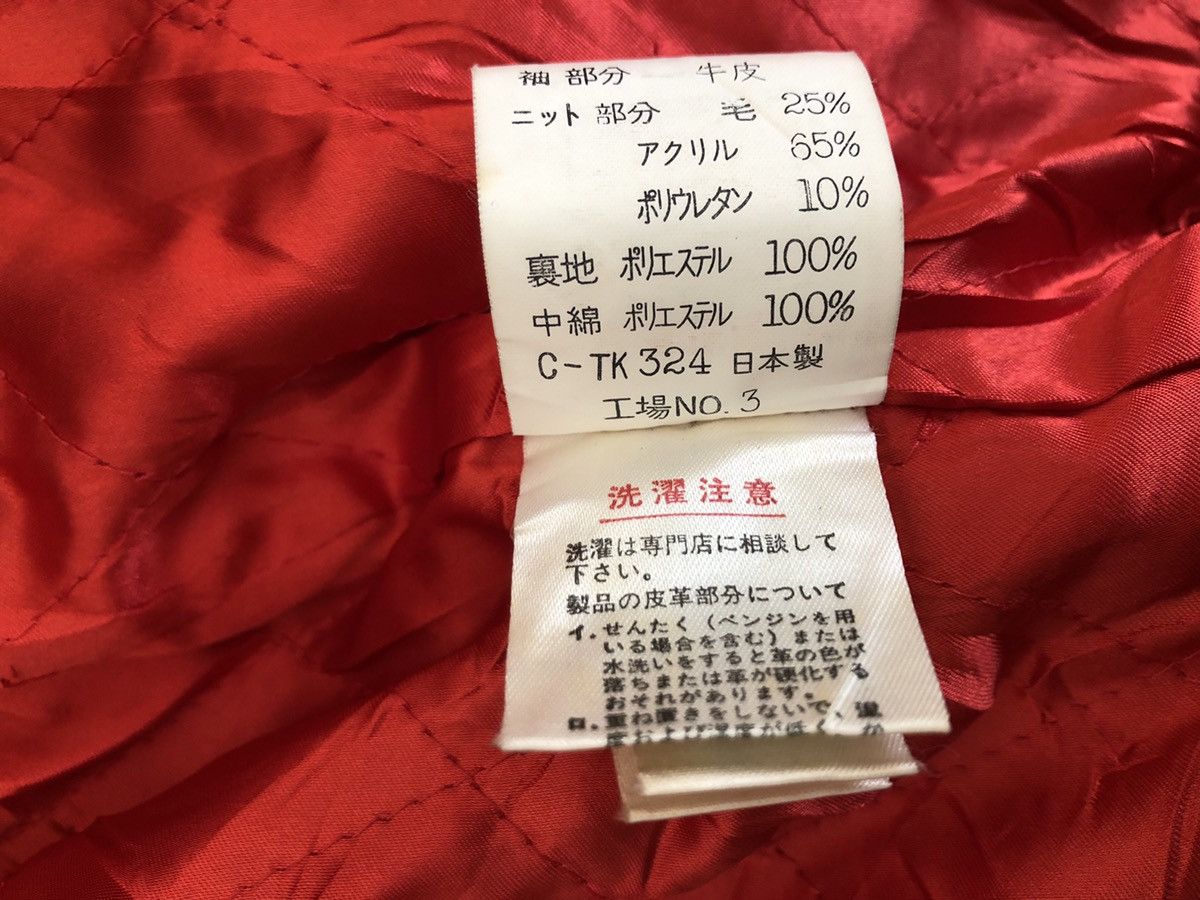 袖部分 牛皮
ニット部分 毛 25%
アクリル 65%
ポリウルタン 10%
裏地 ポリエステル 100%
中綿 ポリエステル 100%
C-TK324 日本製
工場NO.3
洗濯注意
洗濯は専門店に相談して
下さい。
製品の皮革部分について
イ.せんたく(ベンジンを用
いる場合を含む)または
水洗いをすると革の色が
落ちまたは革が硬化する
おそれがあります。
ロ.重ね置きをしないで、温
度および湿度が低く、か